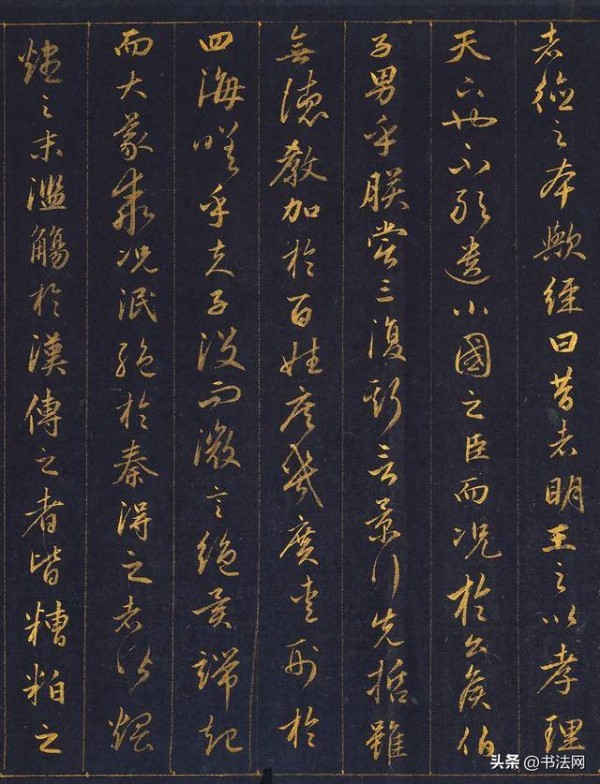 者德之本歟經曰昔者明王之以孝理
天下也不敢遺小國之臣而况於公侯伯
子男乎朕嘗三復斯言景行先哲雖
無德教加於百姓庶幾廣愛刑於
四海嗟乎夫子没而微言絶異端起
而大義乖况泯絶於秦得之者皆煨
燼之末濫觴於漢傳之者皆糟粕之
头条 @书法网